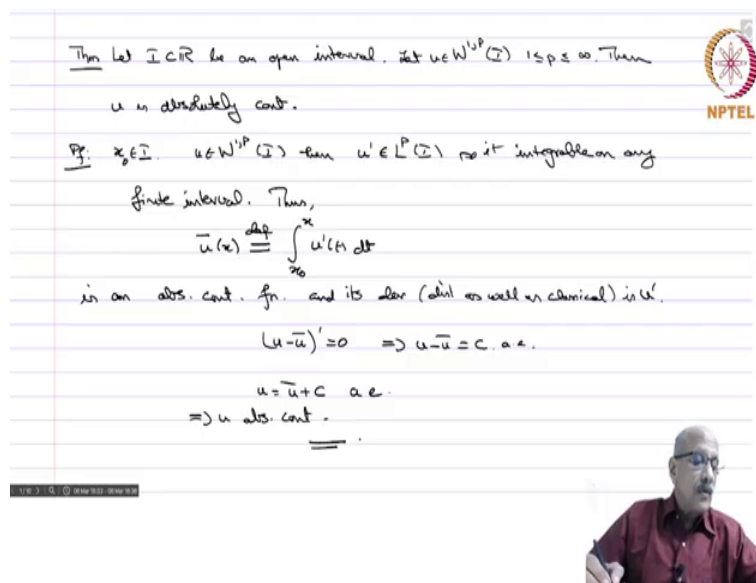 Thm Let I ⊂ ℝ be an open interval. Let u ∈ W^{1,p}(I) 1 ≤ p ≤ ∞. Then
u is absolutely cont.
NPTEL
Pf: x₀ ∈ I. u ∈ W^{1,p}(I) then u' ∈ L^p(I) so it integrable on any
finite interval. Thus,
ū(x) ≝ ∫_{x₀}^{x} u'(t) dt
is an abs. cont. fn. and its der (dist as well as classical) is u'.
(u-ū)' = 0 ⇒ u-ū = C. a.e.
u = ū + C a e.
⇒ u abs. cont.